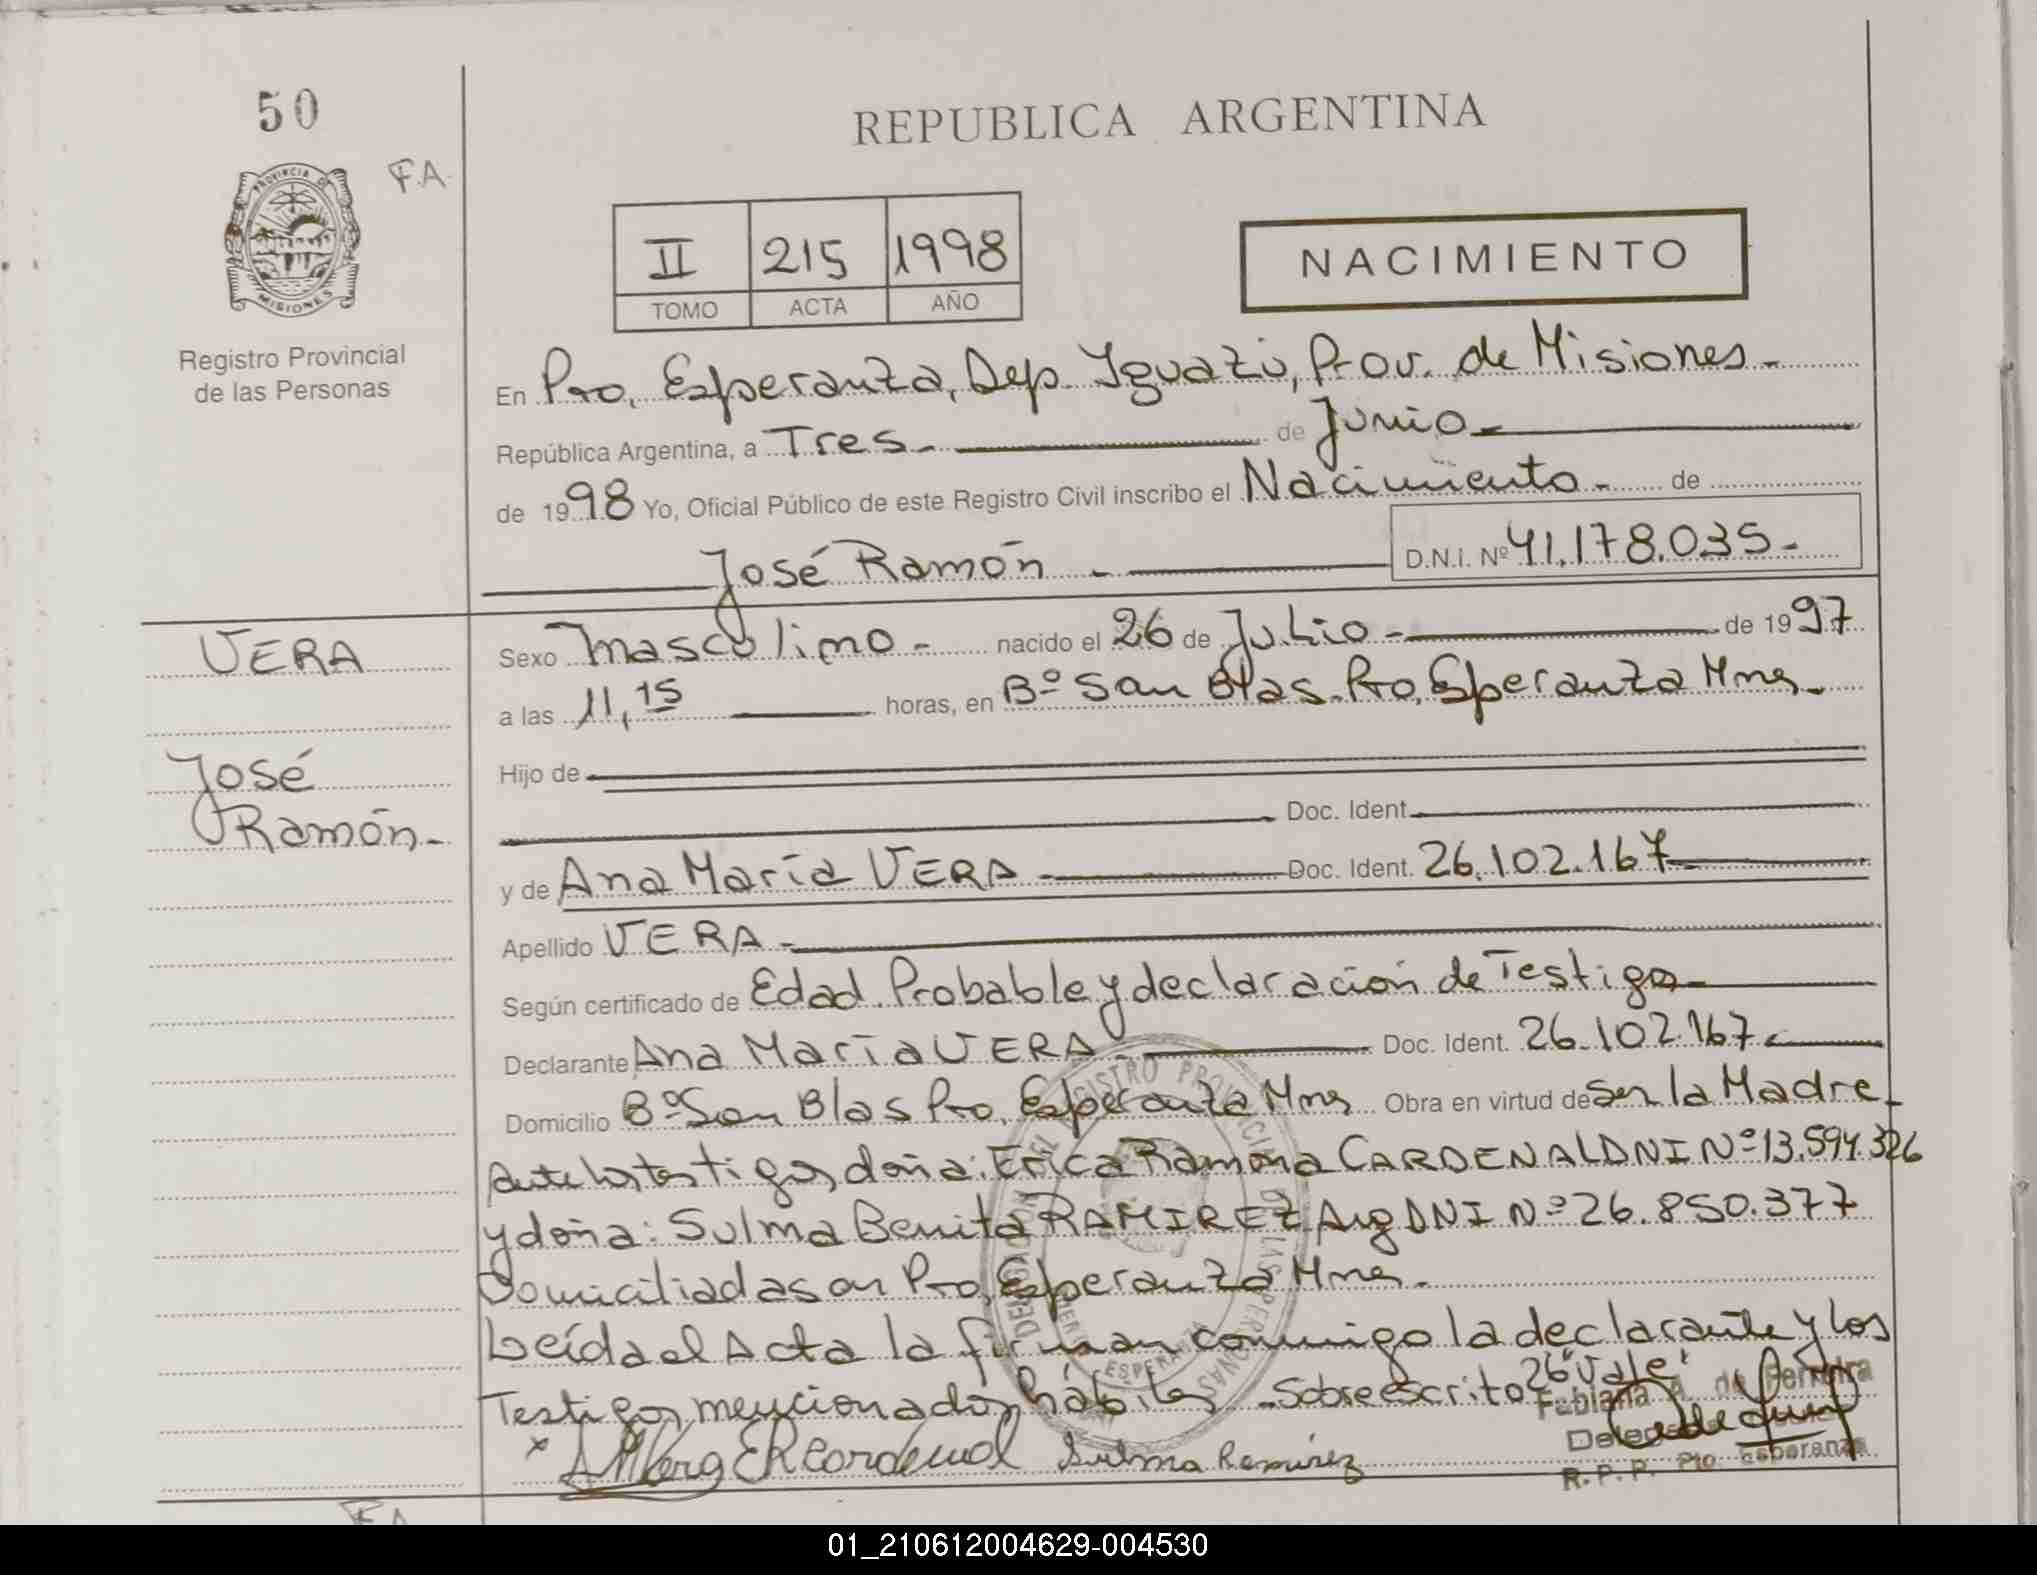 50
F.A.
REPUBLICA ARGENTINA
PROVINCIA DE
MISIONES
II 215 1998
TOMO ACTA AÑO
NACIMIENTO
Registro Provincial
de las Personas
En Pto. Esperanza, Dep. Iguazú, Prov. de Misiones.-
República Argentina, a Tres.- de Junio.-
de 1998 Yo, Oficial Público de este Registro Civil inscribo el Nacimiento.- de
José Ramón.- D.N.I. Nº 41.178.035.-
VERA
Sexo Masculino.- nacido el 26 de Julio.- de 1997
a las 11,15 horas, en Bº San Blas. Pto. Esperanza Mnes.-
José
Ramón.-
Hijo de
Doc. Ident.
y de Ana María VERA Doc. Ident. 26.102.167
Apellido VERA.-
Según certificado de Edad Probable y declaración de Testigos
Declarante Ana María VERA.- Doc. Ident. 26.102.167.-
Domicilio Bº San Blas Pto. Esperanza Mnes Obra en virtud de ser la Madre
ante los testigos doña: Erica Ramona CARDENAL DNI Nº 13.594.326
y doña: Sulma Benita RAMIREZ Arg DNI Nº 26.850.377
Domiciliadas en Pto. Esperanza Mnes.
Leída el Acta la firman conmigo la declarante y los
Testigos mencionados hábiles .- Sobreescrito "26" Vale!
ERCardenal Sulma Ramírez
Fabiana A. de Ferreira
R.P.P. Pto. Esperanza
REGISTRO PROVINCIAL DE LAS PERSONAS
ESPERANZA
FA
01_210612004629-004530